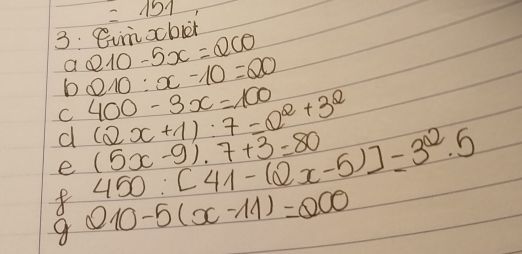 = 151
3: Tìm x biết
a 210 - 5x = 200
b 210 : x - 10 = 20
c 400 - 3x = 100
d (2x + 1) : 7 = 2² + 3²
e (5x - 9) . 7 + 3 = 80
f 450 : [41 - (2x - 5)] = 3² . 5
g 210 - 5(x - 11) = 200